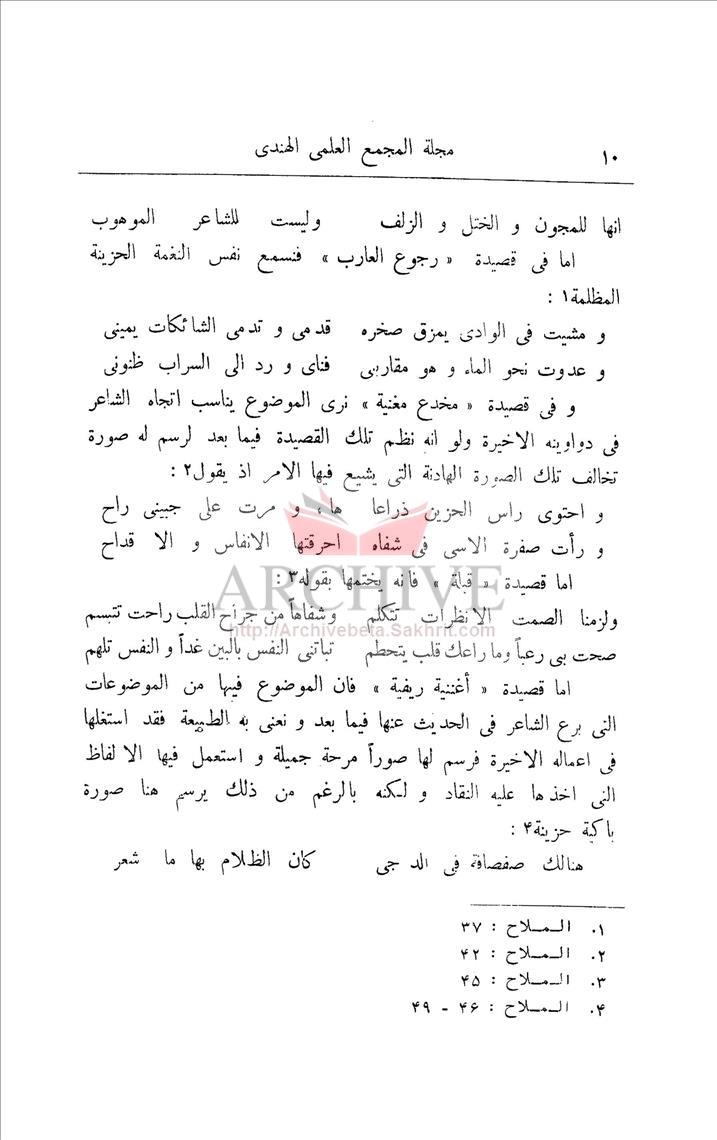 ١٠ مجلة المجمع العلمى الهندى
انها للمجون و الختل و الزلف وليست للشاعر الموهوب
اما فى قصيدة « رجوع العارب » فنسمع نفس النغمة الحزينة
المظلمة١ :
و مشيت فى الوادى يمزق صخره قدمى و تدمى الشائكات يمينى
و عدوت نحو الماء و هو مقاربى فناى و رد الى السراب ظنونى
و فى قصيدة « مخدع مغنية » نرى الموضوع يناسب اتجاه الشاعر
فى دواوينه الاخيرة ولو انه نظم تلك القصيدة فيما بعد لرسم له صورة
تخالف تلك الصورة الهادئة التى يشيع فيها الامر اذ يقول٢ :
و احتوى راس الحزين ذراعا ها، و مرت على جبينى راح
و رأت صفرة الاسى فى شفاه احرقتها الانفاس و الا قداح
ARCHIVE
اما قصيدة « قبلة » فانه يختمها بقوله٣ :
ولزمنا الصمت الا نظرات تتكلم وشفاهاً من جراح القلب راحت تتبسم
http://Archivebeta.Sakhrit.com
صحت بى رعباً وما راعك قلب يتحطم تباتنى النفس بالبين غداً و النفس تلهم
اما قصيدة « أغننية ريفية » فان الموضوع فيها من الموضوعات
التى برع الشاعر فى الحديث عنها فيما بعد و نعنى به الطبيعة فقد استغلها
فى اعماله الاخيرة فرسم لها صوراً مرحة جميلة و استعمل فيها الا لفاظ
التى اخذها عليه النقاد و لكنه بالرغم من ذلك يرسم هنا صورة
باكية حزينة۴ :
هنالك صفصافة فى الد جى كان الظلام بها ما شعر
١. الـمـلاح : ٣٧
٢. الـمـلاح : ۴٢
٣. الـمـلاح : ۴۵
۴. الـمـلاح : ۴۶ - ۴٩